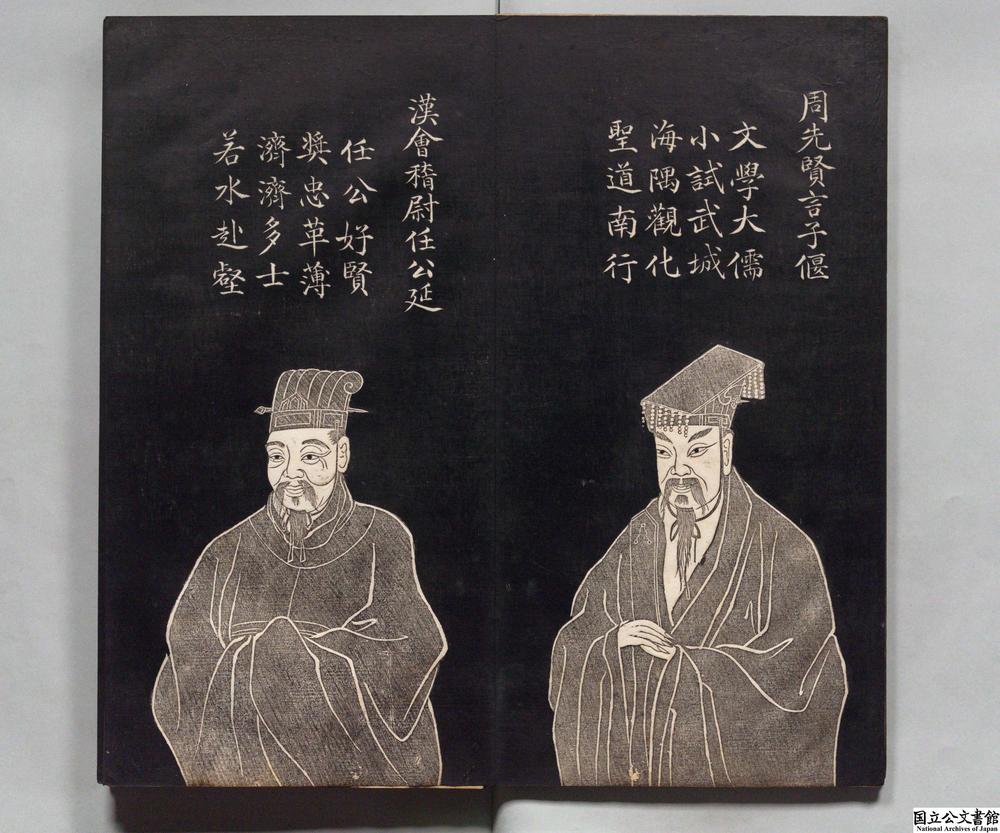 周先賢言子偃
文學大儒
小試武城
海隅觀化
聖道南行
漢會稽尉任公延
任公好賢
奬忠革薄
濟濟多士
若水赴壑
国立公文書館
National Archives of Japan